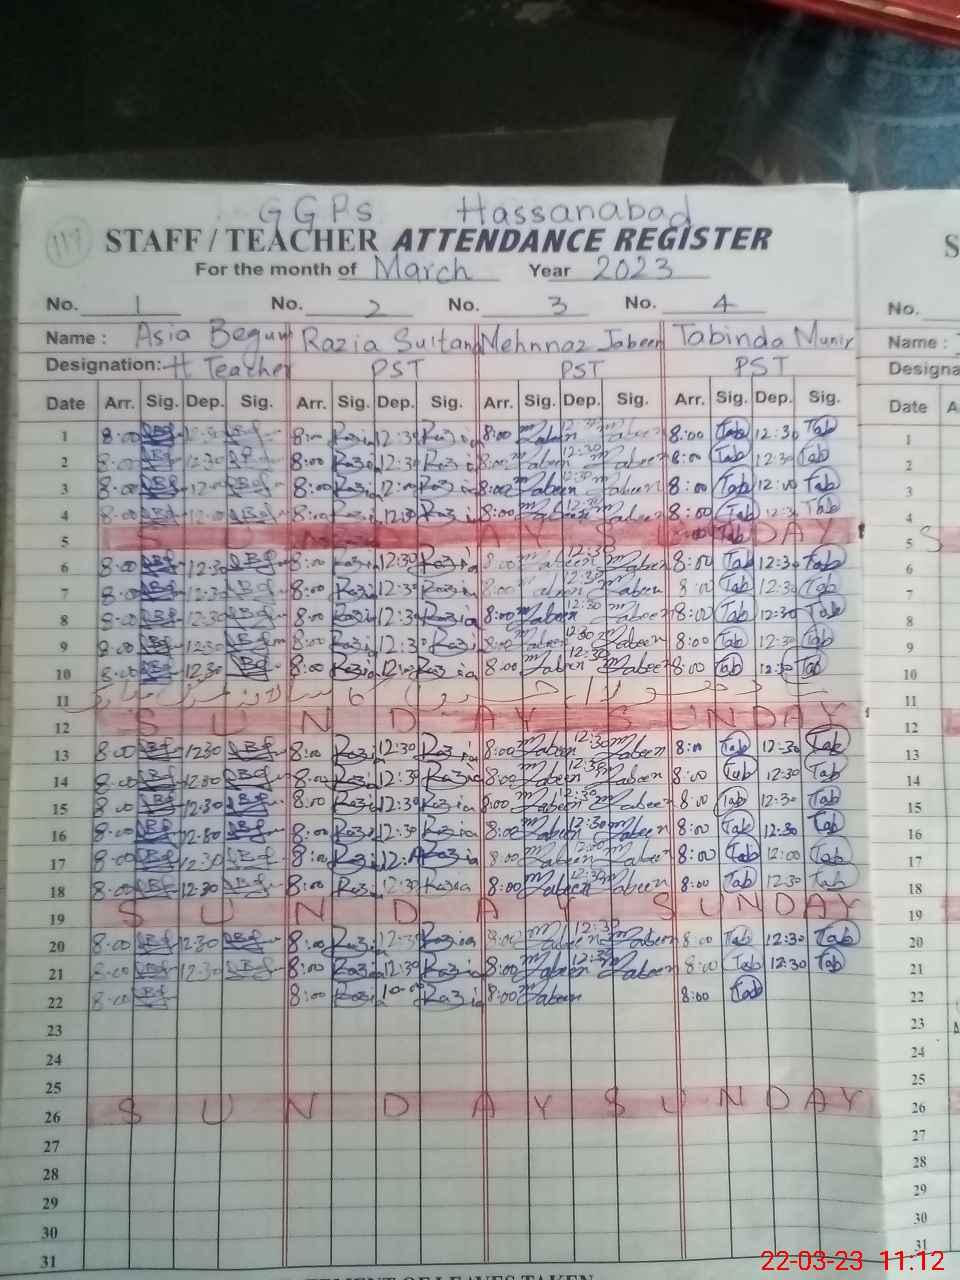 GGPS Hassanabad
117
STAFF / TEACHER ATTENDANCE REGISTER
For the month of March Year 2023
No. 1 No. 2 No. 3 No. 4
Name : Asia Begum Razia Sultana Mehnnaz Jabeen Tabinda Munir
Designation: H Teacher PST PST PST
Date Arr. Sig. Dep. Sig. Arr. Sig. Dep. Sig. Arr. Sig. Dep. Sig. Arr. Sig. Dep. Sig.
1 8:00 12:30 8:00 Razia 12:30 Razia 8:00 Jabeen 12:30 Jabeen 8:00 Tab 12:30 Tab
2 8:00 12:30 8:00 Razia 12:30 Razia 8:00 Jabeen 12:30 Jabeen 8:00 Tab 12:30 Tab
3 8:00 12:00 8:00 Razia 12:00 Razia 8:00 Jabeen Jabeen 8:00 Tab 12:00 Tab
4 8:00 12:00 8:00 Razia 12:30 Razia 8:00 Jabeen Jabeen 8:00 Tab 12:30 Tab
5 SUNDAY SUNDAY
6 8:00 12:30 8:00 Razia 12:30 Razia 8:00 Jabeen 12:30 Jabeen 8:00 Tab 12:30 Tab
7 8:00 12:30 8:00 Razia 12:30 Razia 8:00 Jabeen 12:30 Jabeen 8:00 Tab 12:30 Tab
8 8:00 12:30 8:00 Razia 12:30 Razia 8:00 Jabeen 12:30 Jabeen 8:00 Tab 12:30 Tab
9 8:00 12:30 8:00 Razia 12:30 Razia 8:00 Jabeen 12:30 Jabeen 8:00 Tab 12:30 Tab
10 8:00 12:30 8:00 Razia Razia 8:00 Jabeen 12:30 Jabeen 8:00 Tab 12:30 Tab
11
12 SUNDAY SUNDAY
13 8:00 1230 8:00 Razia 12:30 Razia 8:00 Jabeen 12:30 Jabeen 8:00 Tab 12:30 Tab
14 8:00 12:30 8:00 Razia 12:30 Razia 8:00 Jabeen 12:30 Jabeen 8:00 Tab 12:30 Tab
15 8:00 12:30 8:00 Razia 12:30 Razia 8:00 Jabeen 12:30 Jabeen 8:00 Tab 12:30 Tab
16 8:00 12:30 8:00 Razia 12:30 Razia 8:00 Jabeen 12:30 Jabeen 8:00 Tab 12:30 Tab
17 8:00 12:30 8:00 Razia Razia 8:00 Jabeen Jabeen 8:00 Tab 12:00 Tab
18 8:00 12:30 8:00 Razia 12:30 Razia 8:00 Jabeen 12:30 Jabeen 8:00 Tab 12:30 Tab
19 SUNDAY SUNDAY
20 8:00 1230 8:00 Razia 12:30 Razia 8:00 Jabeen 12:30 Jabeen 8:00 Tab 12:30 Tab
21 8:00 12:30 8:00 Razia 12:30 Razia 8:00 Jabeen 12:30 Jabeen 8:00 Tab 12:30 Tab
22 8:00 8:00 Razia Razia 8:00 Jabeen 8:00 Tab
23
24
25
26 SUNDAY SUNDAY
27
28
29
30
31
S
No.
Name :
Designa
Date A
1
2
3
4
5 S
6
7
8
9
10
11
12
13
14
15
16
17
18
19
20
21
22
23
24
25
26
27
28
29
30
31
22-03-23 11:12